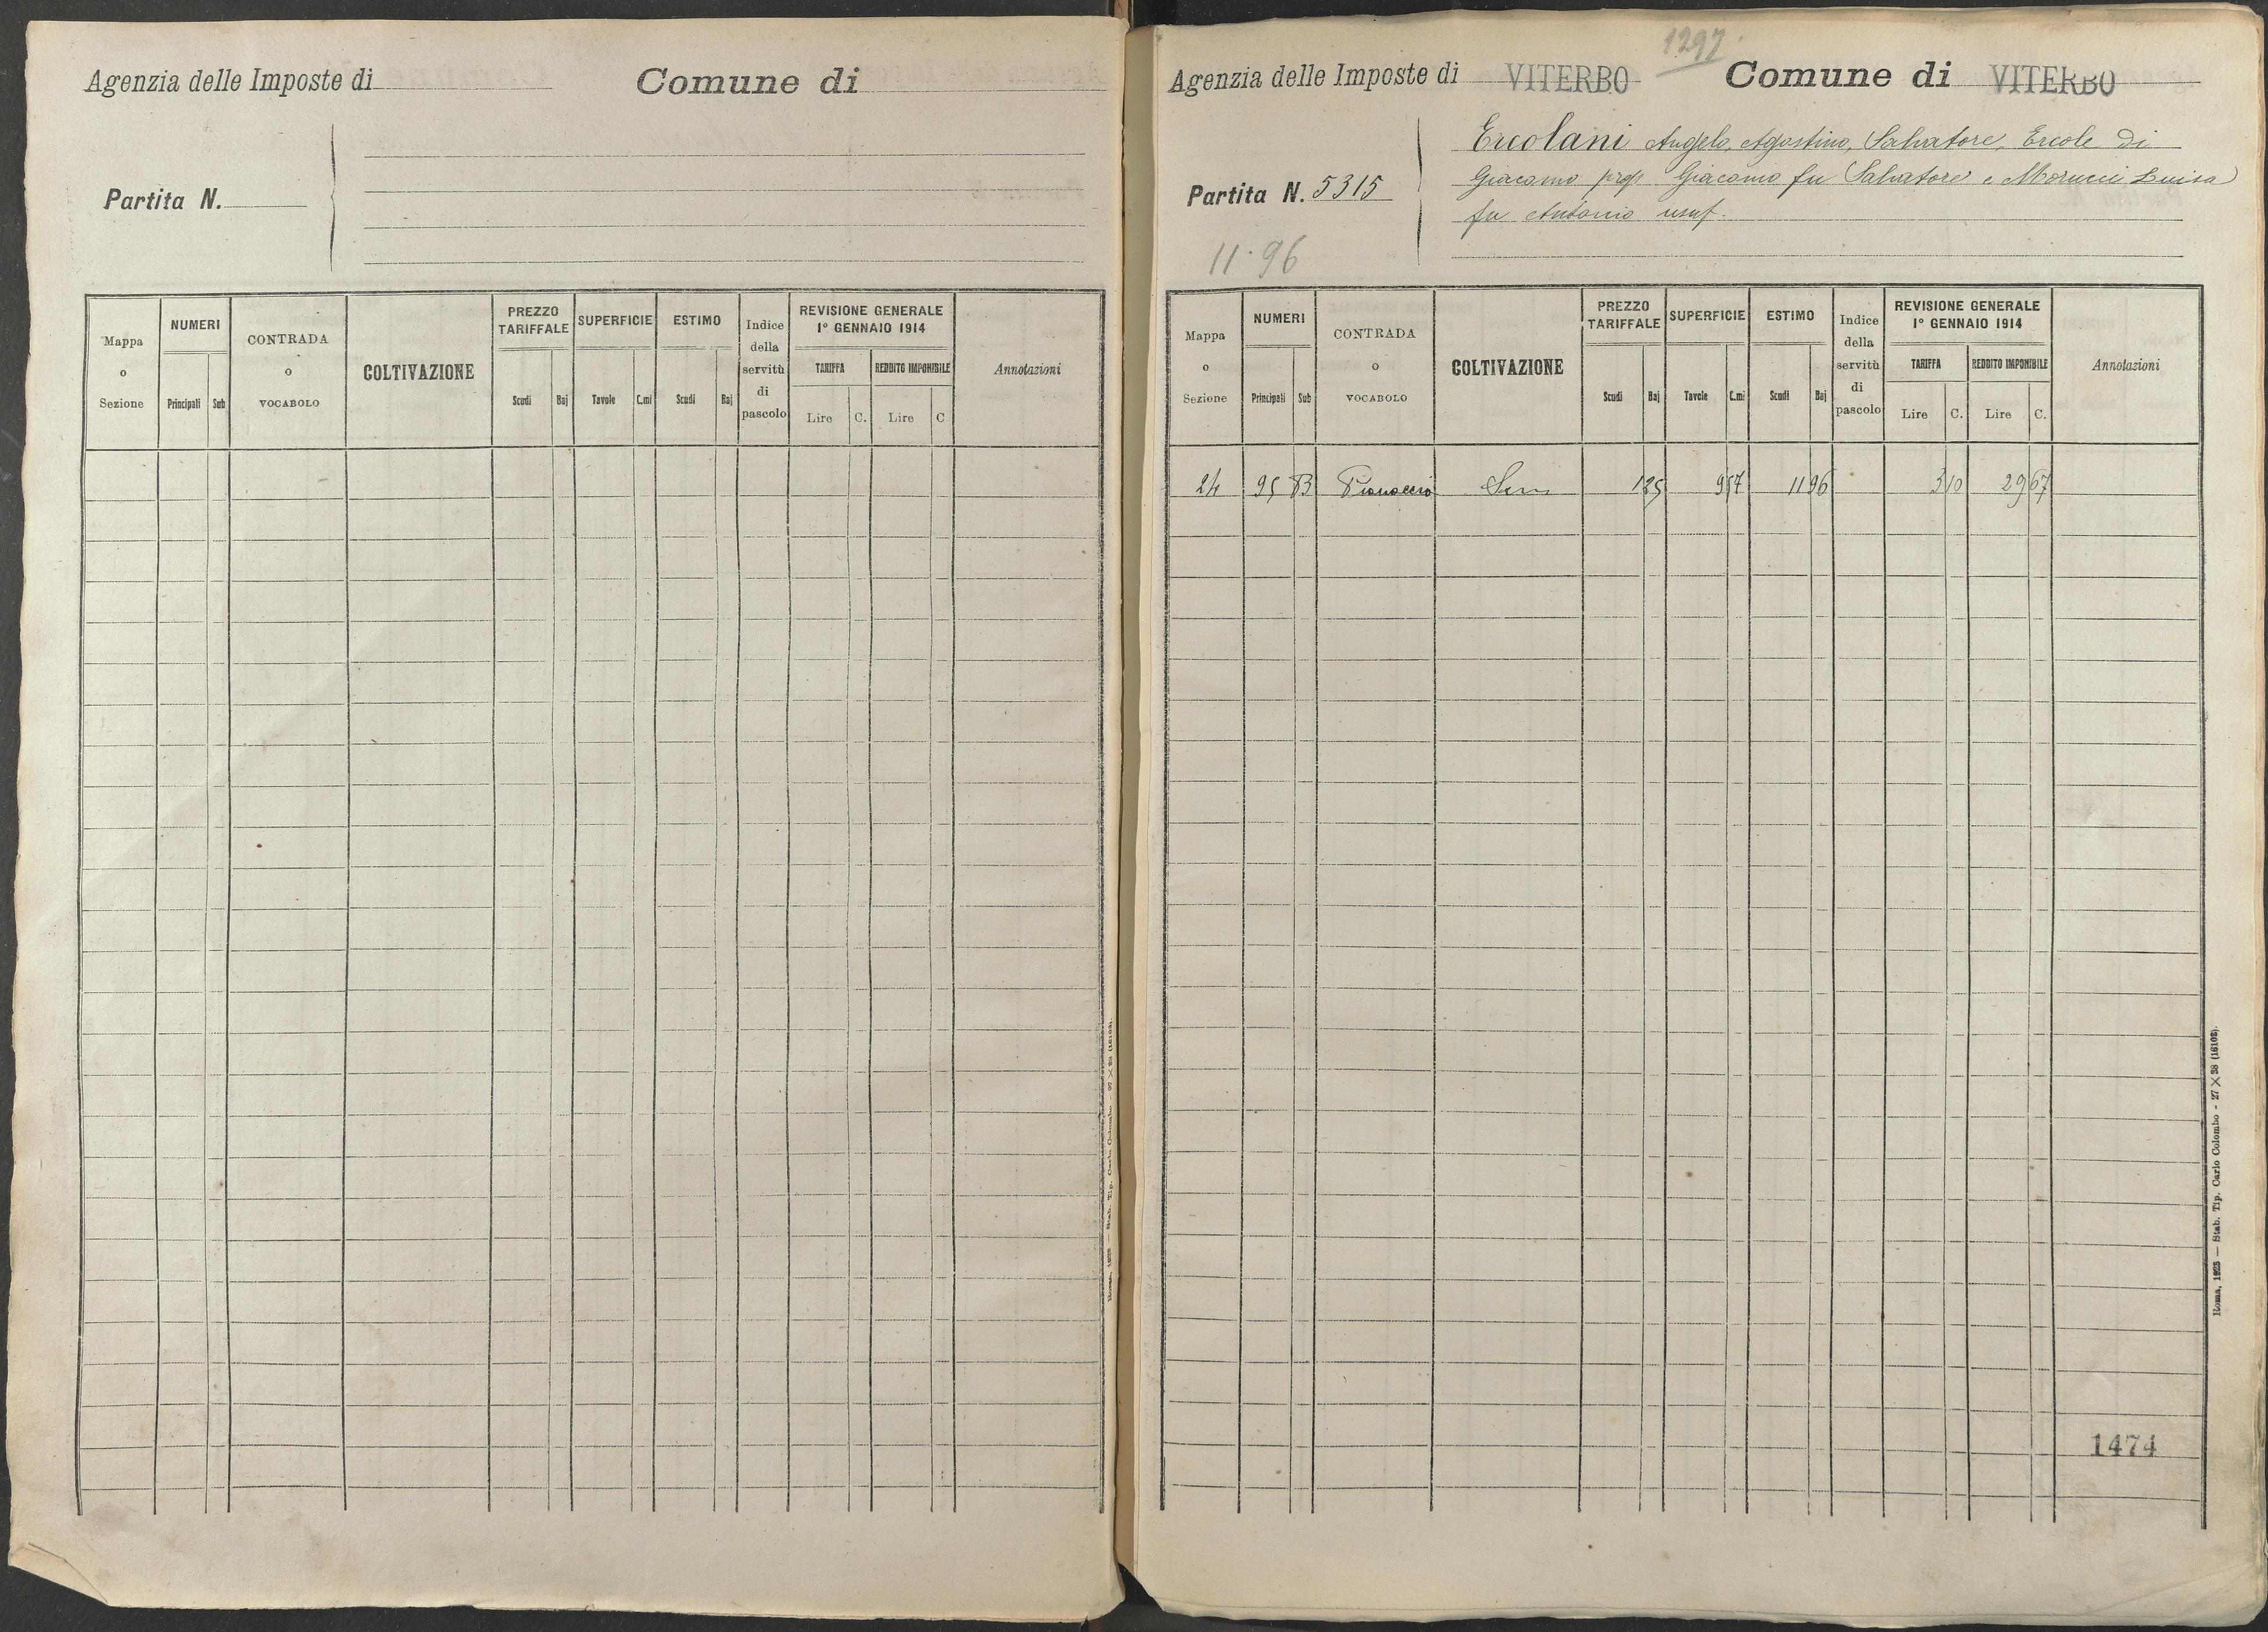 Agenzia delle Imposte di
Comune di
Partita N.
Mappa o Sezione
NUMERI
Principali Sub
CONTRADA o VOCABOLO
COLTIVAZIONE
PREZZO TARIFFALE
Scudi Baj
SUPERFICIE
Tavole C.mi
ESTIMO
Scudi Baj
Indice della servitù di pascolo
REVISIONE GENERALE
1° GENNAIO 1914
TARIFFA
Lire C.
REDDITO IMPONIBILE
Lire C
Annotazioni
1297
Agenzia delle Imposte di VITERBO
Comune di VITERBO
Partita N. 5315
11.96
Ercolani Angelo, Agostino, Salvatore, Ercole di
Giacomo prop. Giacomo fu Salvatore e Morucci Luisa
fu Antonio usuf.
Mappa o Sezione
NUMERI
Principali Sub
CONTRADA o VOCABOLO
COLTIVAZIONE
PREZZO TARIFFALE
Scudi Baj
SUPERFICIE
Tavole C.mi
ESTIMO
Scudi Baj
Indice della servitù di pascolo
REVISIONE GENERALE
1° GENNAIO 1914
TARIFFA
Lire C.
REDDITO IMPONIBILE
Lire C.
Annotazioni
24 95 B Sem 1 25 9 57 11 96 3 10 29 67
1474
Roma, 1923 — Stab. Tip. Carlo Colombo - 27 X 38 (16103).